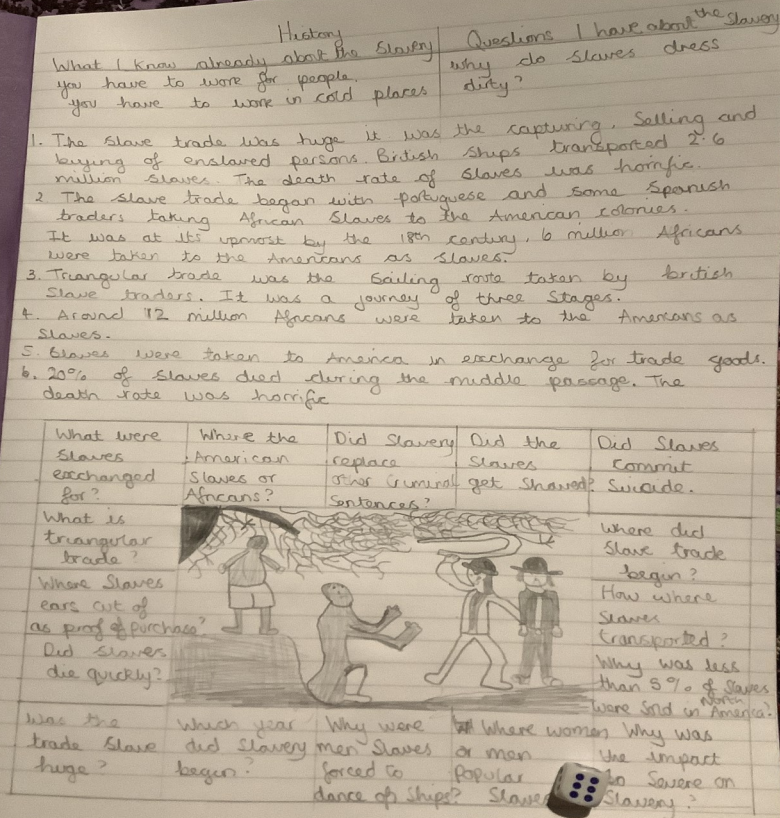 History
What I know already about the Slavery
you have to wore for people.
you have to work in cold places
Questions I have about the Slavery
why do slaves dress
dirty?
1. The slave trade was huge it was the capturing, Selling and
buying of enslaved persons. British ships transported 2.6
million slaves. The death rate of slaves was horrific.
2 The slave trade began with portuguese and some Spanish
traders taking African slaves to the American colonies.
It was at its upmost by the 18th century, 6 million Africans
were taken to the Americans as slaves.
3. Triangular trade was the Sailing route taken by british
Slave traders. It was a journey of three stages.
4. Around 12 million Africans were taken to the Americans as
slaves.
5. Slaves were taken to America in exchange for trade goods.
6. 20% of slaves died during the middle passage. The
death rate was horrific
What were
Slaves
exchanged
for?
Where the
American
Slaves or
Africans?
Did Slavery
replace
other Criminal
Sentences?
Did the
Slaves
get Shaved?
Did Slaves
Commit
Suicide.
What is
triangular
trade?
Where Slaves
ears cut of
as proof of purchase?
Did slaves
die quickly?
Where did
Slave trade
begin?
How where
Slaves
transported?
Why was less
than 5% of Slaves
were Sold in North America?
Was the
trade Slave
huge?
Which year
did Slavery
begin?
Why were
men Slaves
forced to
dance of Ships?
Where women
or men
Popular
Why was
the impact
so Severe on
Slavery?